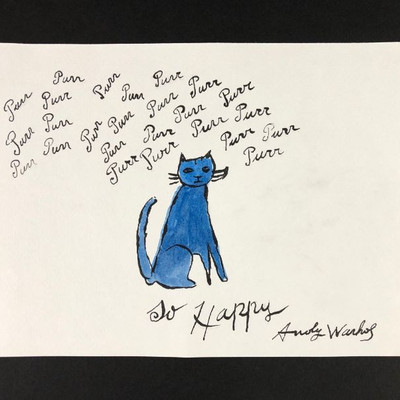 Purr Purr Purr Purr
Purr Purr Purr Purr
Purr Purr Purr Purr Purr Purr
Purr Purr Purr Purr Purr Purr
Purr Purr Purr Purr
Purr
So Happy
Andy Warhol